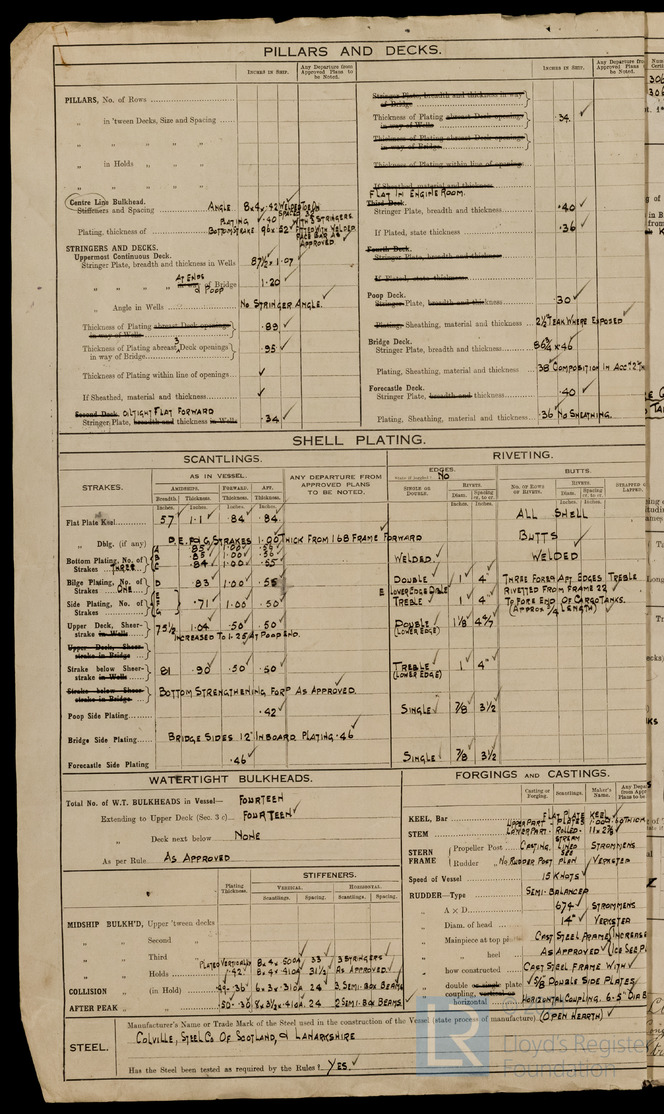 PILLARS AND DECKS.
INCHES IN SHIP.
Any Departure from Approved Plans to be Noted.
PILLARS, No. of Rows
„ in 'tween Decks, Size and Spacing
„ „ „ „ „
„ in Holds „ „ „
„ „ „ „ „
Centre Line Bulkhead.
Stiffeners and Spacing ANGLE 8×4×.42 WELDED TOE ON SPACED 36
PLATING .40 WITH 3 STRINGERS
Plating, thickness of BOTTOM STRAKE 96×.52 FITTED WITH WELDED FACE BAR AS APPROVED
STRINGERS AND DECKS.
Uppermost Continuous Deck.
Stringer Plate, breadth and thickness in Wells 87½×1.07
„ „ „ „ AT ENDS in way of Bridge & POOP 1.20
„ Angle in Wells NO STRINGER ANGLE.
Thickness of Plating abreast Deck openings in way of Wells .89
Thickness of Plating abreast 3 Deck openings in way of Bridge .95
Thickness of Plating within line of openings ✓
If Sheathed, material and thickness ✓
Second Deck. OILTIGHT FLAT FORWARD
Stringer Plate, breadth and thickness in Wells .34
INCHES IN SHIP.
Any Departure from Approved Plans to be Noted.
Stringer Plate, breadth and thickness in way of Bridge
Thickness of Plating abreast Deck openings in way of Wells .34
Thickness of Plating abreast Deck openings in way of Bridge
Thickness of Plating within line of openings
If Sheathed, material and thickness
FLAT IN ENGINE ROOM.
Third Deck.
Stringer Plate, breadth and thickness .40
If Plated, state thickness .36
Fourth Deck.
Stringer Plate, breadth and thickness
If Plated, state thickness
Poop Deck.
Stringer Plate, breadth and thickness .30
Plating, Sheathing, material and thickness 2½" TEAK WHERE EXPOSED
Bridge Deck.
Stringer Plate, breadth and thickness 86¾ ×.46
Plating, Sheathing, material and thickness .38 COMPOSITION IN ACC:
Forecastle Deck.
Stringer Plate, breadth and thickness .40
Plating, Sheathing, material and thickness .36 NO SHEATHING.
SHELL PLATING.
SCANTLINGS.
RIVETING.
STRAKES.
AS IN VESSEL.
AMIDSHIPS.
FORWARD.
AFT.
Breadth. Thickness. Thickness. Thickness.
Inches. Inches. Inches. Inches.
ANY DEPARTURE FROM APPROVED PLANS TO BE NOTED.
EDGES.
State if joggled? NO
SINGLE OR DOUBLE.
RIVETS.
Diam. Spacing cr. to cr.
Inches. Inches.
BUTTS.
No. OF ROWS OF RIVETS.
RIVETS.
Diam. Spacing cr. to cr.
Inches. Inches.
STRAPPED OR LAPPED.
Flat Plate Keel 57 1.1 .84 .84 ALL SHELL
„ Dblg. (if any) D.E. & G STRAKES 1.00 THICK FROM 168 FRAME FORWARD BUTTS
A .85 1.00 .56
B .85 1.00 .56
Bottom Plating, No. of Strakes THREE C .84 1.00 .55 WELDED. WELDED
Bilge Plating, No. of Strakes ONE D .83 1.00 .55 DOUBLE 1" 4" THREE FORE & AFT EDGES TREBLE
E LOWER EDGE DBLE RIVETTED FROM FRAME 22
Side Plating, No. of Strakes E F G .71 1.00 .50 TREBLE 1" 4" TO FORE END OF CARGO TANKS.
(APPROX ¾ LENGTH)
Upper Deck, Sheer-strake in Wells 75½ 1.04 .50 .50 DOUBLE (LOWER EDGE) 1⅛
INCREASED TO 1.25 AT POOP END.
Upper Deck, Sheer-strake in Bridge
Strake below Sheer-strake in Wells 81 .90 .50 .50 TREBLE (LOWER EDGE) 1" 4"
Strake below Sheer-strake in Bridge
BOTTOM STRENGTHENING FORD AS APPROVED.
Poop Side Plating .42 SINGLE 7/8 3½
Bridge Side Plating BRIDGE SIDES 12" INBOARD. PLATING .46
Forecastle Side Plating .46 SINGLE 7/8 3½
WATERTIGHT BULKHEADS.
Total No. of W.T. BULKHEADS in Vessel— FOURTEEN
Extending to Upper Deck (Sec. 3 c) FOURTEEN
„ Deck next below NONE
As per Rule AS APPROVED
Plating Thickness.
STIFFENERS.
VERTICAL. HORIZONTAL.
Scantlings. Spacing. Scantlings. Spacing.
MIDSHIP BULKH'D, Upper 'tween decks
„ „ Second „
„ „ Third „ PLATED VERTICALLY 8×4×.50OA 33 3 STRINGERS
„ „ Holds .42 8×4×.41OA 31½ AS APPROVED
COLLISION „ (in Hold) .36 6×3×.31OA 24 3 SEMI-BOX BEAMS
AFTER PEAK „ „ .50-.36 8×3½×.41OA 24 2 SEMI-BOX BEAMS
FORGINGS AND CASTINGS.
Casting or Forging.
Scantlings.
Maker's Name.
KEEL, Bar FLAT PLATE KEEL
STEM UPPER PART - PLATES
LOWER PART - ROLLED - 11×2⅞
STERN FRAME
Propeller Post CASTING, STREAM LINED SEE STROMMENS
Rudder „ NO RUDDER POST PLAN VERKSTED
Speed of Vessel 15 KNOTS
RUDDER—Type SEMI-BALANCED
„ A × D 674 STROMMENS
„ Diam. of head 14" VERKSTED
„ Mainpiece at top CAST STEEL FRAME (INCREASE
„ „ heel AS APPROVED (ICE SEE
„ how constructed CAST STEEL FRAME WITH
„ double or single plate 5/8" DOUBLE SIDE PLATES
„ coupling, vertical or horizontal HORIZONTAL COUPLING. 6-5" DIA
STEEL.
Manufacturer's Name or Trade Mark of the Steel used in the construction of the Vessel (state process of manufacture) (OPEN HEARTH)
COLVILLE, STEEL CO OF SCOTLAND, & LANARKSHIRE
Has the Steel been tested as required by the Rules? YES.
LR
Lloyd's Register
Foundation